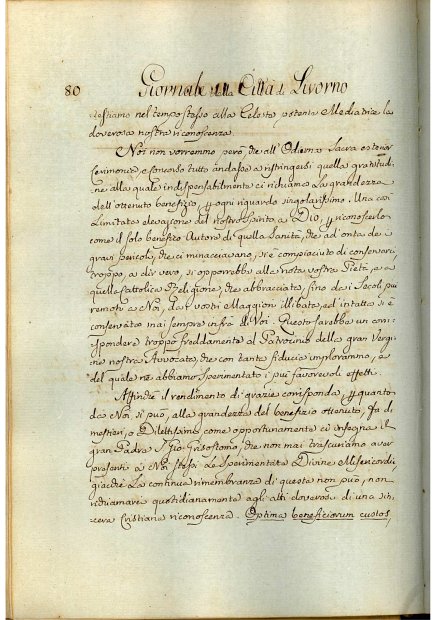 80 Giornale della Città di Livorno
stiamo nel tempo stesso alla Celeste potente Mediatrice la
doverosa nostra riconoscenza.
Noi non vorremmo però che all'Odierna Sacra esterior
Cerimonia, e Concorso tutto andasse a ristringersi quella gratitudi
ne alla quale indispensabilmente ci richiama la grandezza
dell'ottenuto benefizio, ogni riguardo singolarissimo. Una così
Limitata elevazione del nostro Spirito a Dio, riconoscerlo
come il solo benefico Autore di quella Sanità, che ad onta dei
gravi pericoli, che ci minacciavano, si è compiaciuto di conservarci,
troppo, a dir vero, si opporrebbe alla nota vostra Pietà, e a
quella Cattolica Religione, che abbracciata, fino da i Secoli più
remoti a Noi, da i vostri Maggiori illibata, ed intatta si è
conservata mai sempre infra di Voi. Questo sarebbe un corri
spondere troppo freddamente al Patrocinio della gran Vergi
ne nostra Avvocata, che con tanta fiducia implorammo, e
del quale ne abbiamo Sperimentato i più favorevoli effetti.
Affinchè il rendimento di grazie corrisponda, quanto
da Noi si può, alla grandezza del benefizio ottenuto, fa di
mestieri, o Dilettissimi come opportunamente ci insegna il
gran Padre S. Gio: Grisostomo, che non mai trascuriamo aver
presenti a Noi Stessi Le Sperimentate Divine Misericordie,
giacchè La continua rimembranza di queste non può, non
richiamare quotidianamente agli atti doverosi di una sin,
cera Cristiana riconoscenza. Optima beneficiorum custos,